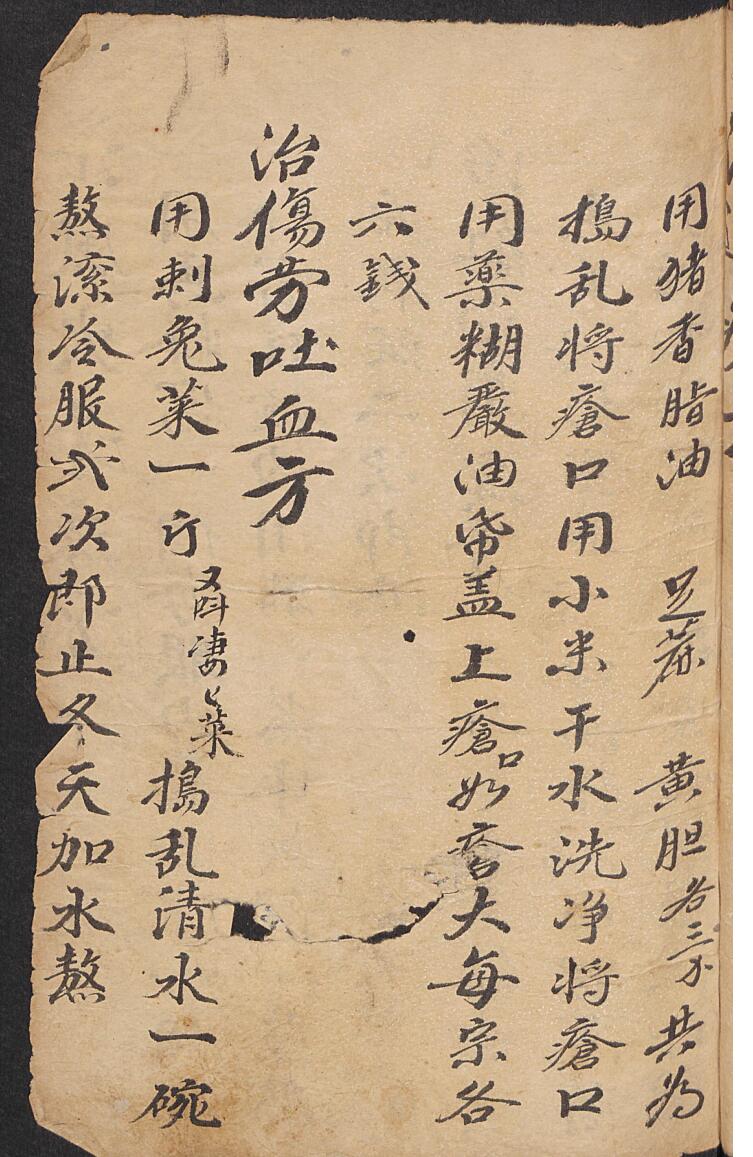 用猪香脂油　苴蔴　黄胆各三彔共為
搗乱将瘡口用小米干水洗净将瘡口
用藥糊嚴油帋盖上瘡口如瘡大每宗各
六錢
治傷劳吐血方
用刺兔菜一斤又叫凄々菜搗乱清水一碗
熬滚冷服弍次即止冬天加水熬